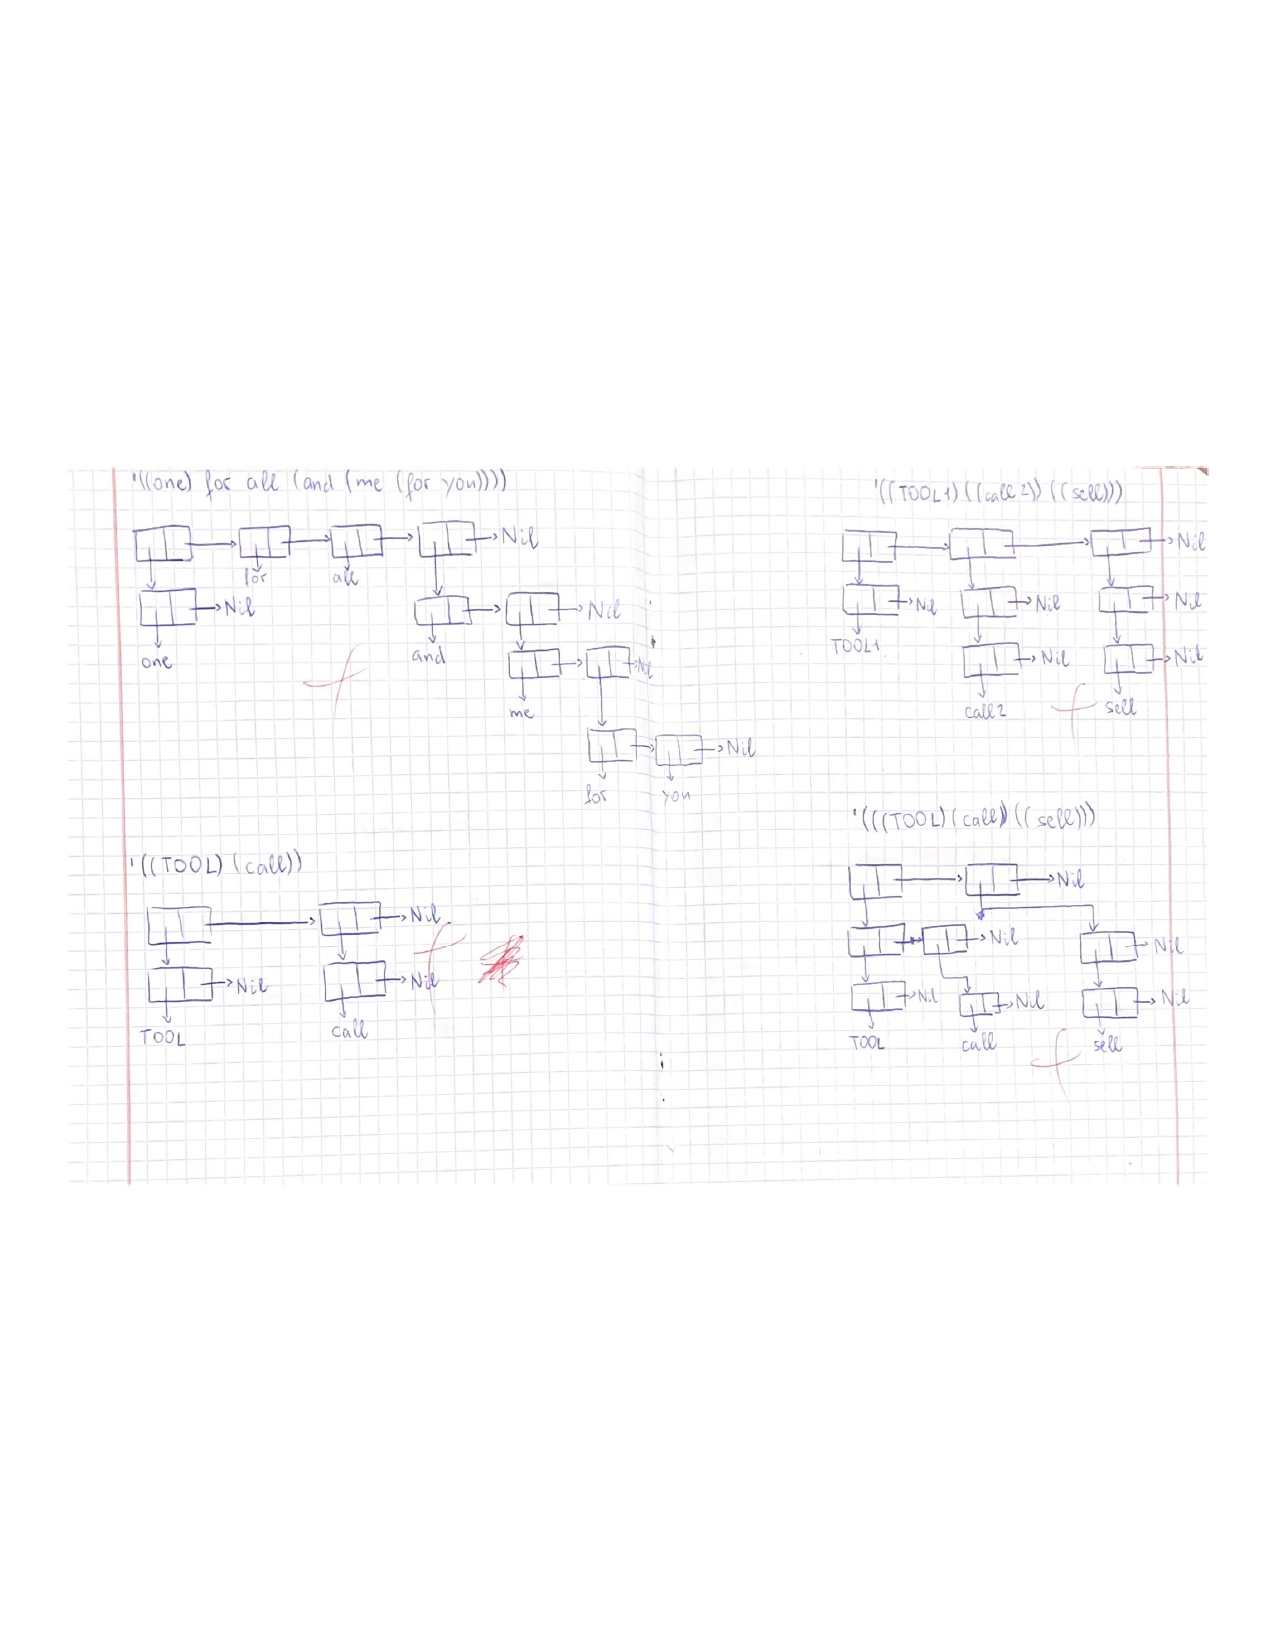 '((one) for all (and (me (for you))))
Nil
for
all
Nil
Nil
one
and
Nil
me
Nil
for
you
'((TOOL) (call))
Nil
Nil
Nil
TOOL
call
'((TOOL1) ((call2)) ((sell)))
Nil
Nil
Nil
Nil
TOOL1
Nil
Nil
call2
sell
'(((TOOL) (call)) ((sell)))
Nil
Nil
Nil
Nil
Nil
Nil
TOOL
call
sell